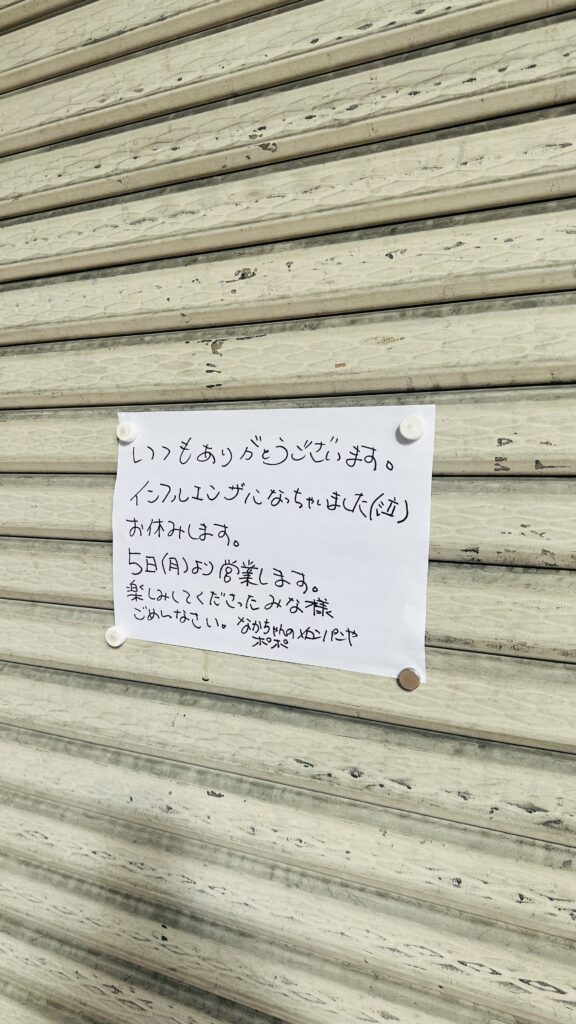 いつもありがとうございます。
インフルエンザになっちゃいました(泣)
お休みします。
5日(月)より営業します。
楽しみしてくださったみな様
ごめんなさい。なかちゃんのメロンパンや
ポポ